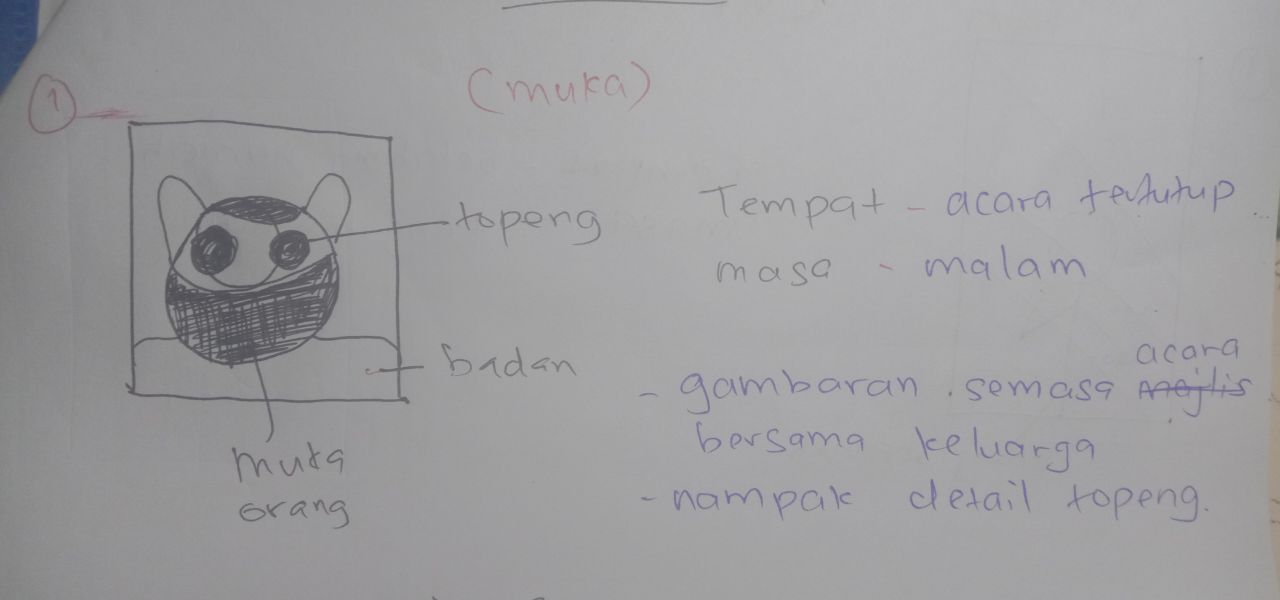 1
(muka)
topeng
badan
muka
orang
Tempat - acara tertutup
masa - malam
acara
- gambaran semasa majlis
bersama keluarga
- nampak detail topeng.